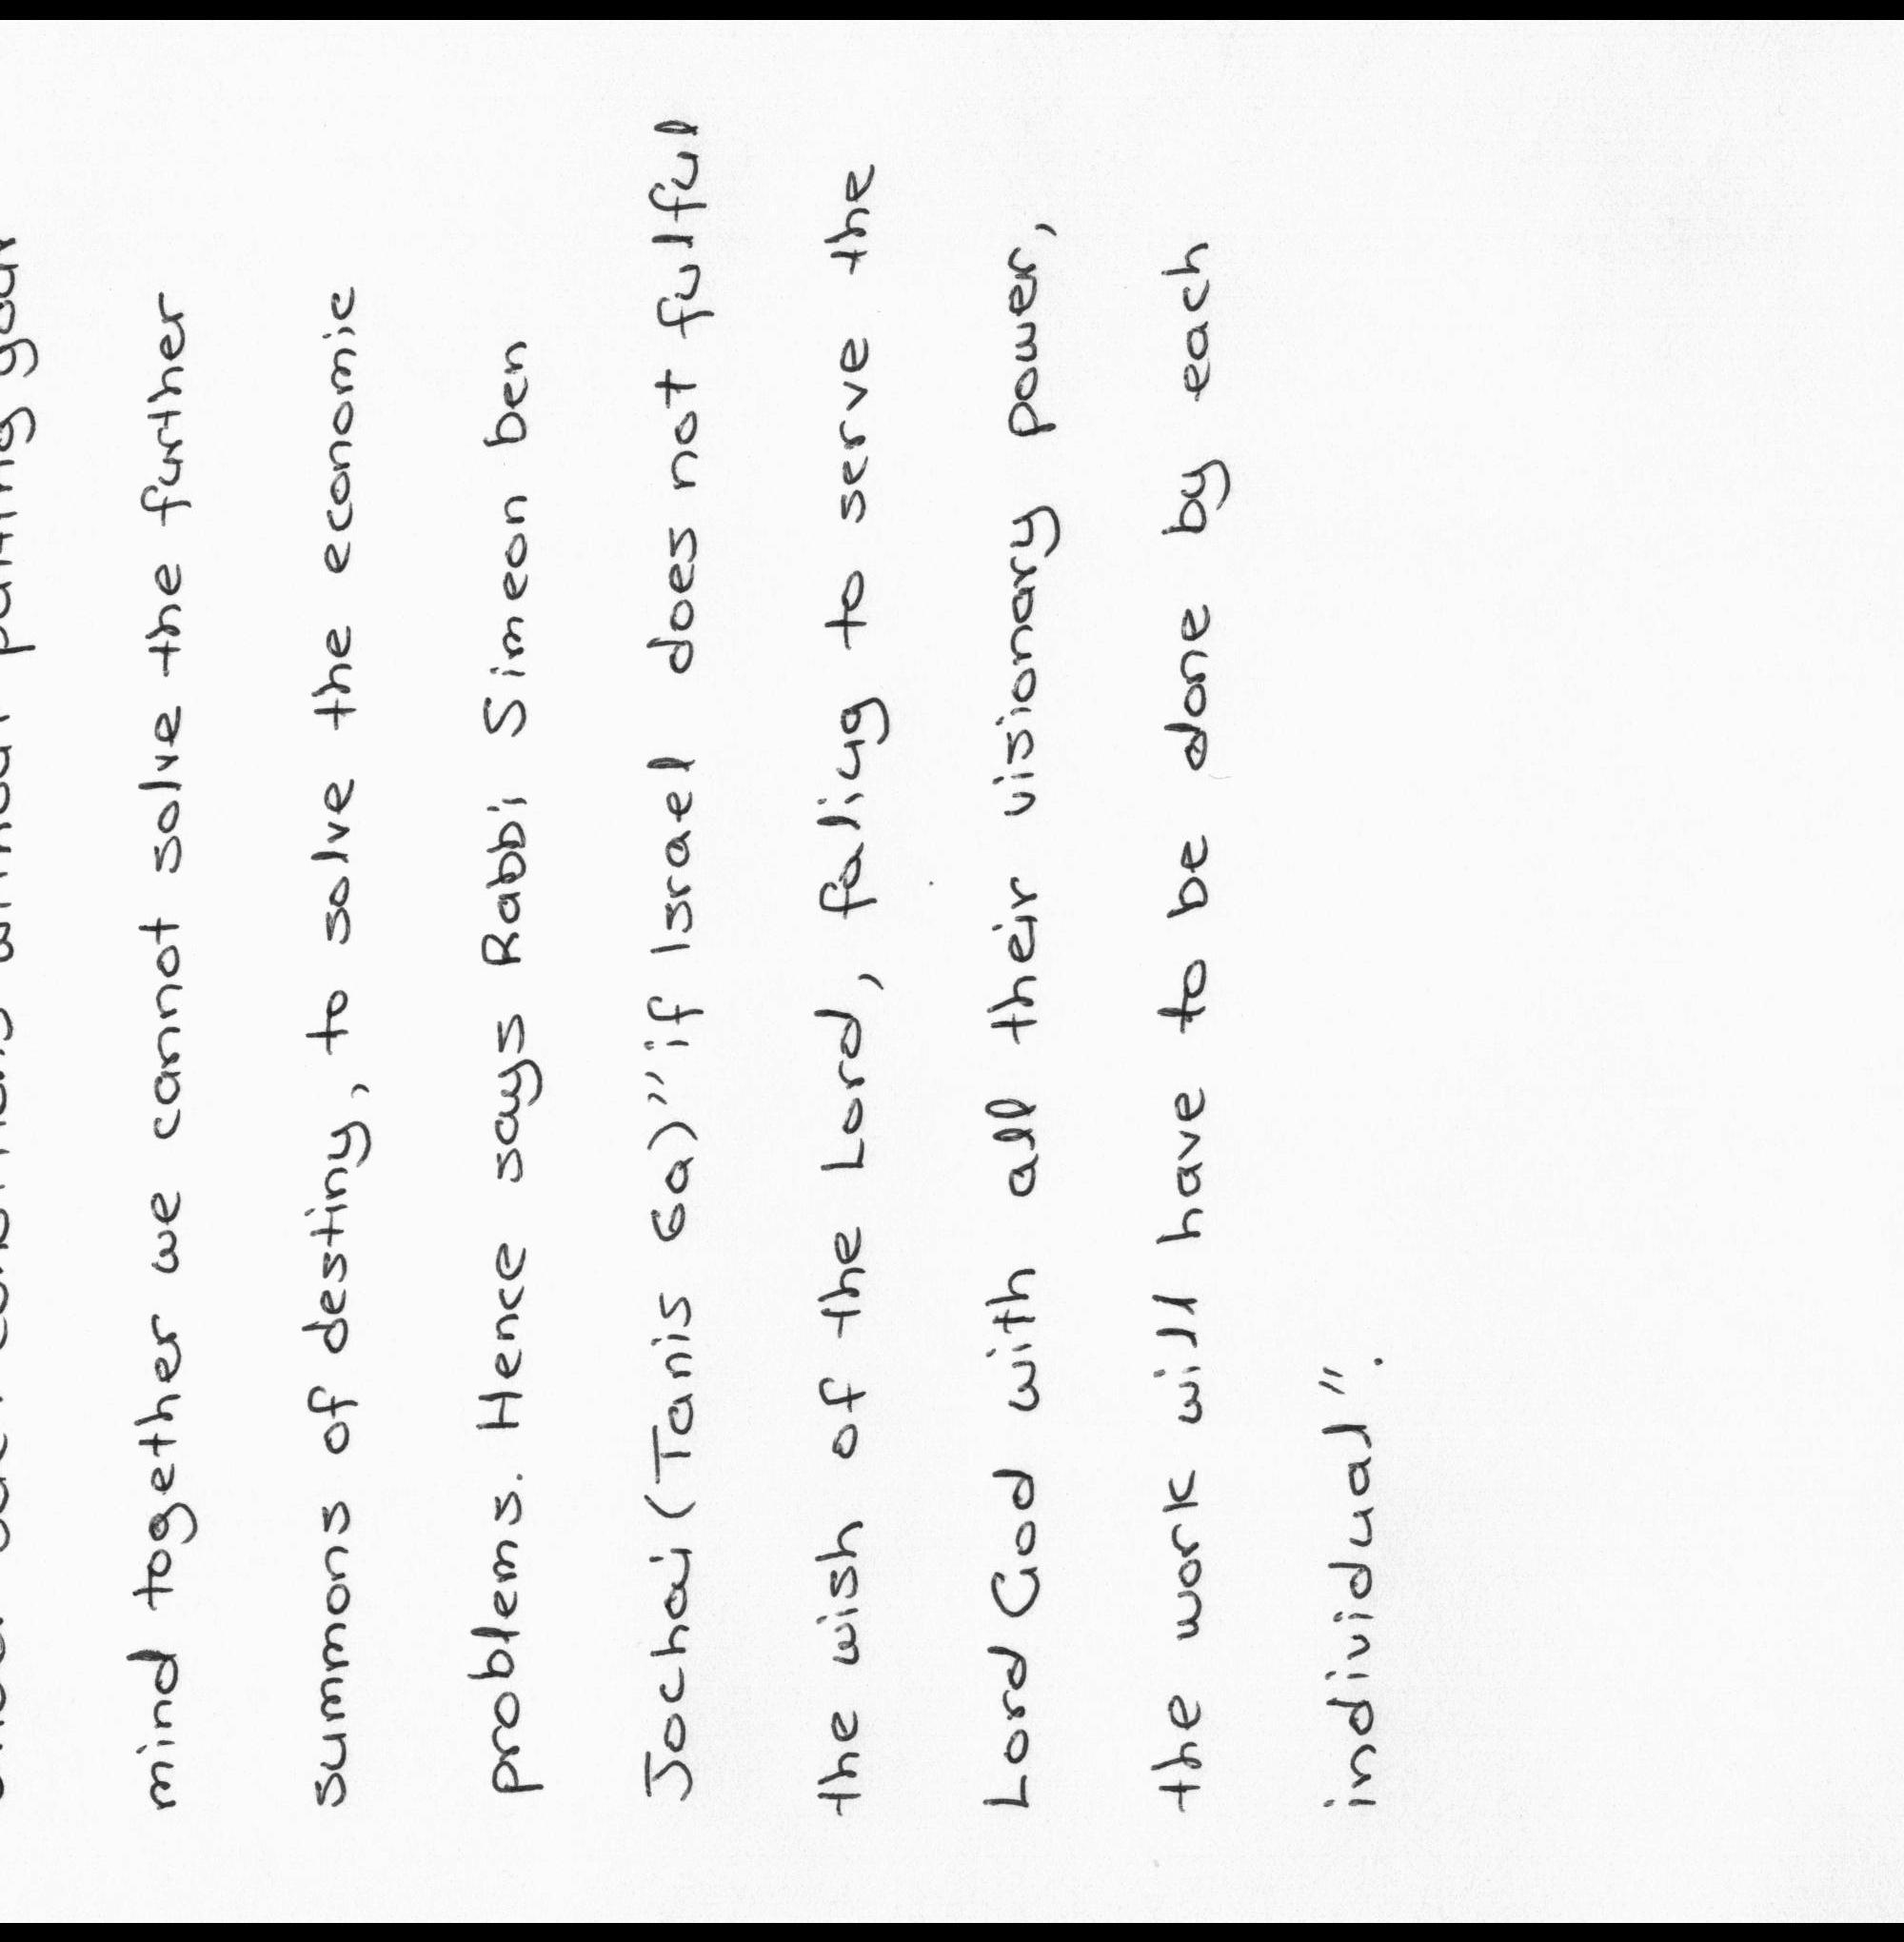 without putting your
mind together we cannot solve the further
summons of destiny, to solve the economic
problems. Hence says Rabbi Simeon ben
Jochai (Tanis 6a)"if Israel does not fulful
the wish of the Lord, faliug to serve the
Lord God with all their visionary power,
the work will have to be done by each
individual".